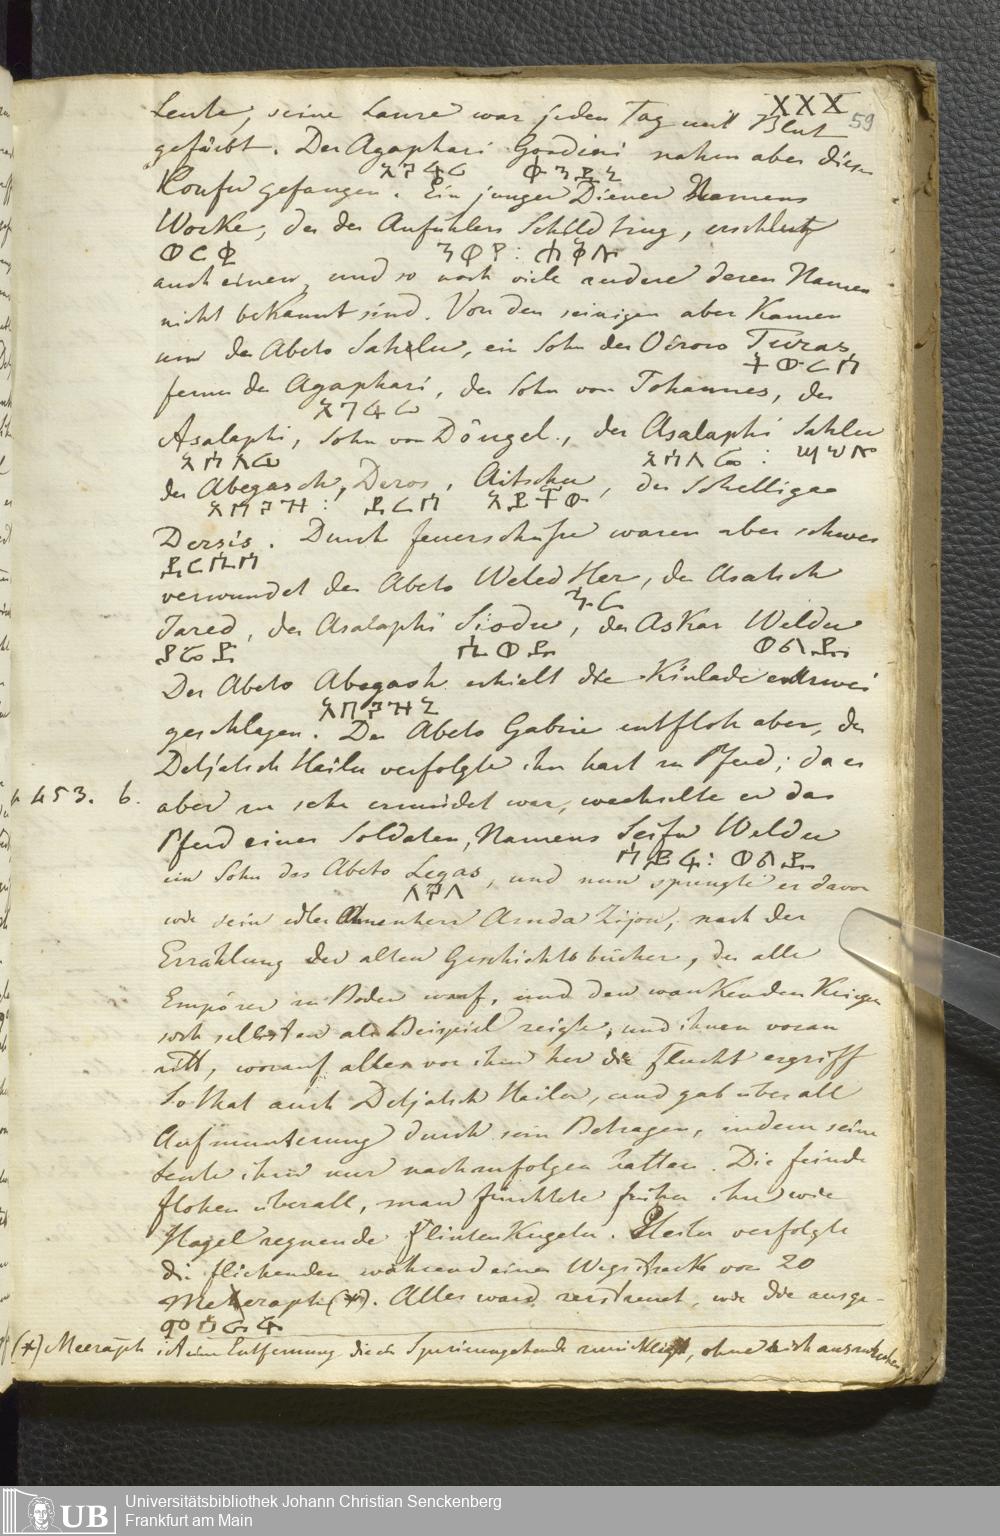 XXX
59
Leute, seine Lanze war jeden Tag mit Blut
gefärbt. Der Agaphari Gondini nahm aber diesen
አጋፋሪ ጎንዲኒ
gefangen. Ein junger Diener Namens
Worke, der des Anführers Schild trug, erschlug
ወርቄ
auch einen, und so noch viele andere deren Namen
nicht bekannt sind. Von den seinigen aber kamen
um der Abeto Sahlu, ein Sohn des Oiroro Turas
ቱራስ
ferner der Agaphari, der Sohn von Johannes, der
አጋፋሪ
Asalaphi, Sohn von Döngel, der Asalaphi Sahlu
አሳላፊ አሳላፊ ፡ ሣህሉ
der Abegasch, Deros, Aitschu, der Schellige
አቤጋዝ ፡ ዴሮስ
Dersis. Durch feuerschüsse waren aber schwer
verwundet der Abeto Weled Her, der Asalsch
Jared, der Asalaphi Siodu, der Askar Weldu
ያሬድ ወልዱ
Der Abeto Abegash erhielt die Kinlade entzwei
geschlagen. Der Abeto Gabrie entfloh aber, der
Detjatsch Hailu verfolgte ihn hart zu Pferd; da er
453. b.
aber zu sehr ermüdet war, wechselte er das
Pferd eines Soldaten, Namens Seifu Weldu
ሰይፉ ፡ ወልዱ
ein Sohn des Abeto Legas, und nun sprengte er davon
ለጋስ
wie sein edler Ahnenherr Amda Zijon, nach der
Erzählung der alten Geschichtsbücher, der alle
Empörer zu Boden warf, und den wankenden Krieger
sich selbsten als Beispiel zeigte, und ihnen voran
ritt, worauf alles vor ihm her die Flucht ergriff
So that auch Detjatsch Hailu, und gab überall
Aufmunterung durch sein Betragen, indem seine
Leute ihm nur nachzufolgen hatten. Die feinde
flohen überall, man fürchtete früher ihn wie
Hagel regnende Flintenkugeln. Heilu verfolgte
die fliehenden während einer Wegstrecke von 20
Meeraph (*). Alles ward zerstreuet, wie die ausge-
ምዕራፍ
(*) Meeraph ist eine Entfernung die ein zurücklegt, ohne sich auszuruhen
Universitätsbibliothek Johann Christian Senckenberg
Frankfurt am Main
UB